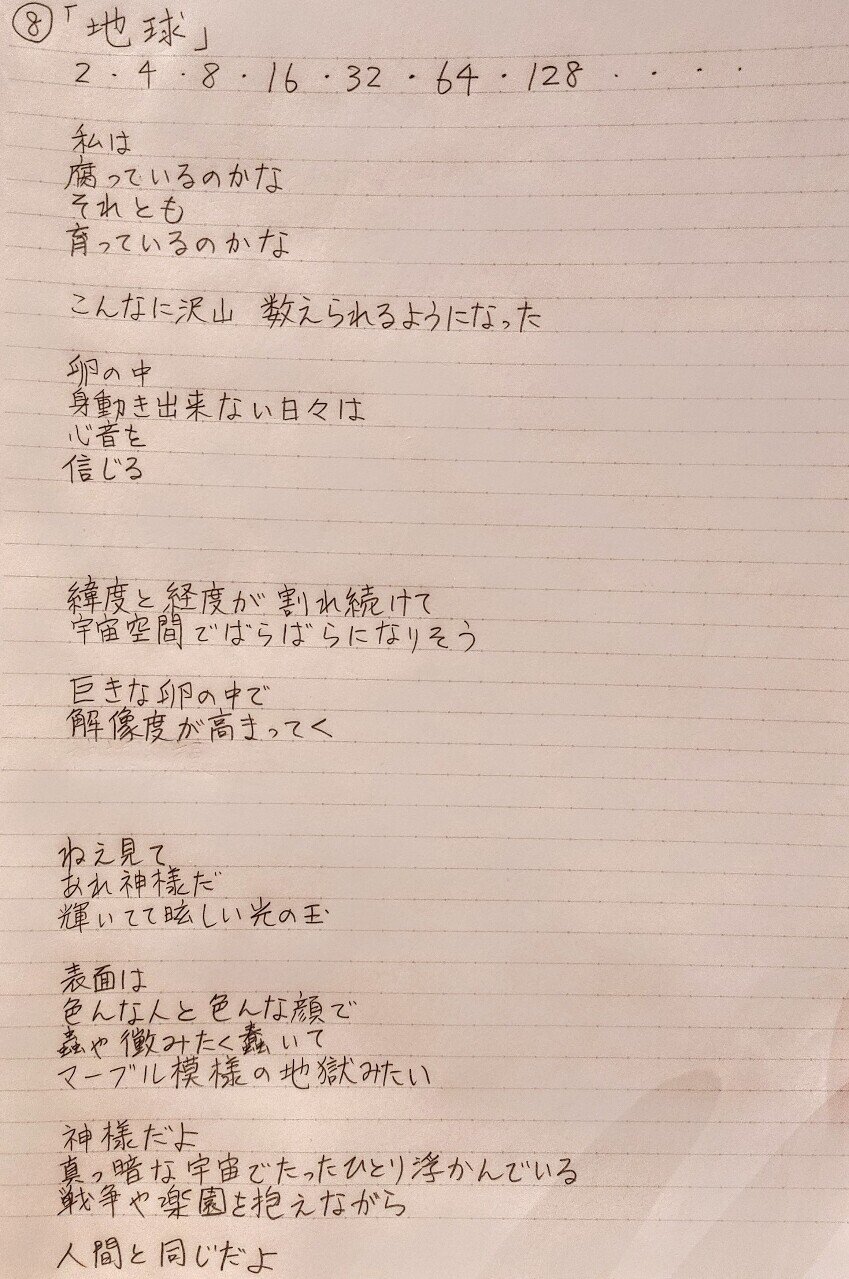 ⑧「地球」
2・4・8・16・32・64・128・・・・
私は
腐っているのかな
それとも
育っているのかな
こんなに沢山 数えられるようになった
卵の中
身動き出来ない日々は
心音を
信じる
緯度と経度が割れ続けて
宇宙空間でばらばらになりそう
巨きな卵の中で
解像度が高まってく
ねえ見て
あれ神様だ
輝いてて眩しい光の玉
表面は
色んな人と色んな顔で
蟲や黴みたく蠢いて
マーブル模様の地獄みたい
神様だよ
真っ暗な宇宙でたったひとり浮かんでいる
戦争や楽園を抱えながら
人間と同じだよ